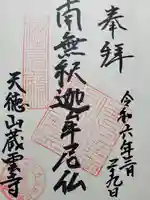 奉拝
令和六年二月二十九日
南無釈迦牟尼仏
天徳山蔵雲寺